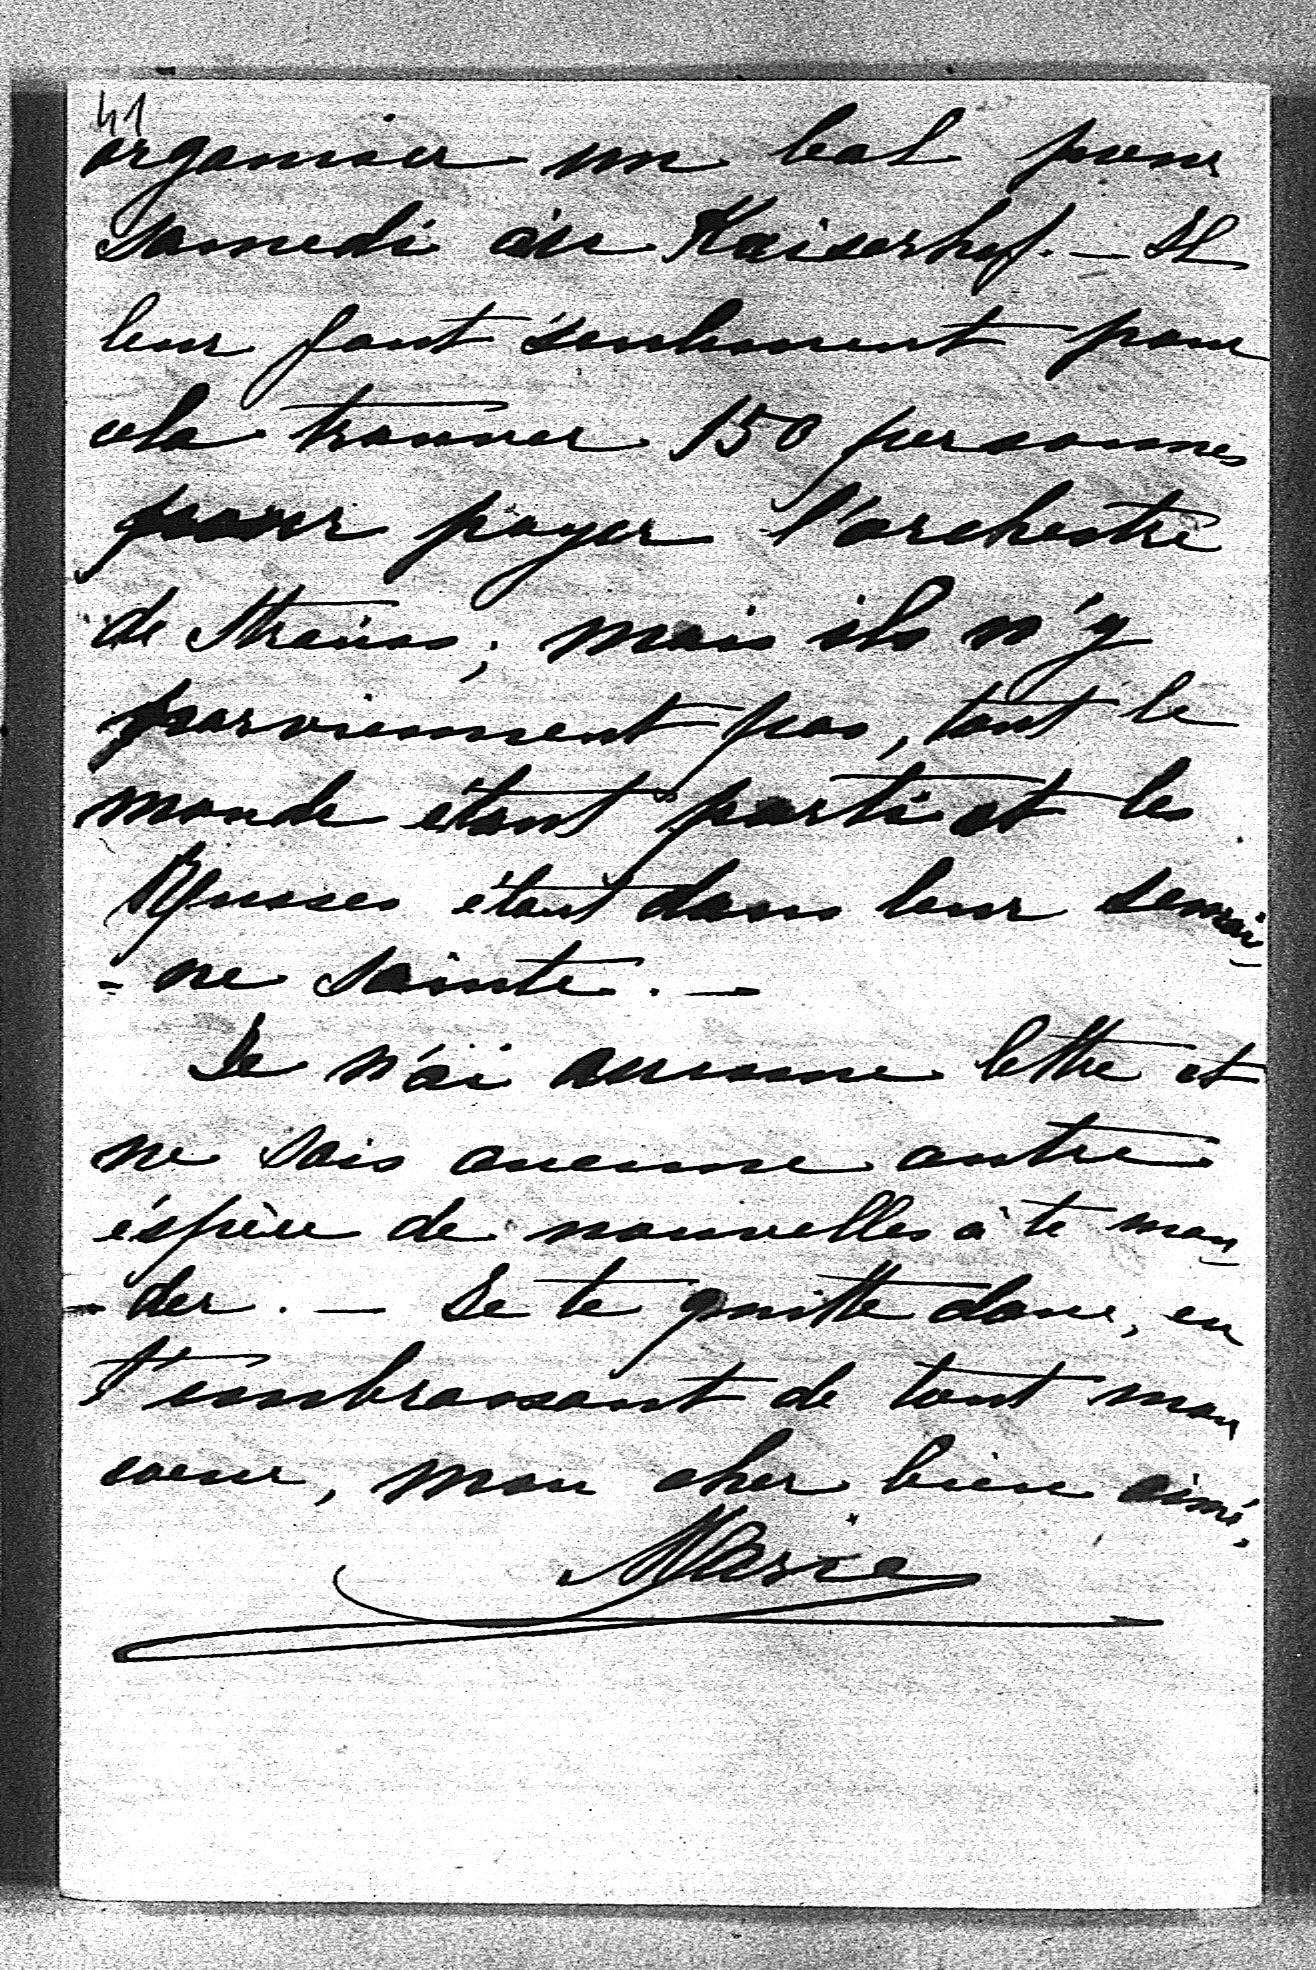 41
organiser un bal pour
samedi au Kaiserhof. — Il
leur faut seulement pour
cela trouver 150 personnes
pour payer l'orchestre
de Strauss; mais ils n'y
parviennent pas, tout le
monde étant parti et les
Russes étant dans leur semai
= ne sainte. —
Je n'ai aucune lettre et
ne sais aucune autre
éspèce de nouvelles à te man
- der. — Je te quitte donc, en
t'embrassant de tout mon
coeur, mon cher bien aimé.
Marie